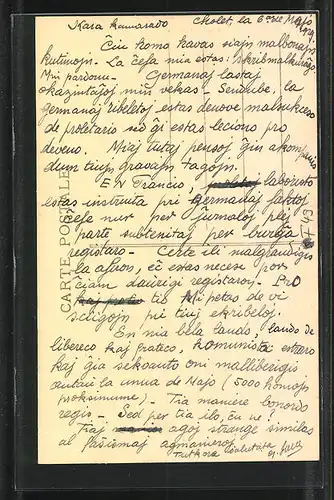 Kara kamarado Cholet, la 6an de Majo
Ĉiu homo havas siajn malbonajn
kutimojn. La ĉefa mia estas: skribmalkuraĝo.
Mi pardonu. - Germanaj lastaj
okazintaĵoj min vekas. -
germanaj ribeletoj estas denove malsukceso
de proletario sed ĝi estas leciono pro
deveno. Miaj tutaj pensoj ĝin akompanis
dum tiuj gravaj tagoj.
En Francio, laboristo
estas instruita pri germanaj faktoj
ĉefe nur per ĵurnaloj plej
parte subtenitaj per burĝa
registaro. - Certe ili malgrandigis
la aferon, ĉe estas necese por
ĉiam daŭrigi registaron. - Pro
tio mi petas de vi
sciigojn pri tiuj ekribeloj.
En nia bela lando, lando de
libereco kaj frateco, komunista
kaj ĝia oni malliberigis
antaŭ la unua de Majo (5000 homojn
proksimume). - Tia maniere
regis - Sed per tia ilo, ĉu ne?
Tiaj agoj strange similas
al faŝismaj agmanieroj.
Tutkora Saluto
CARTE POSTALE